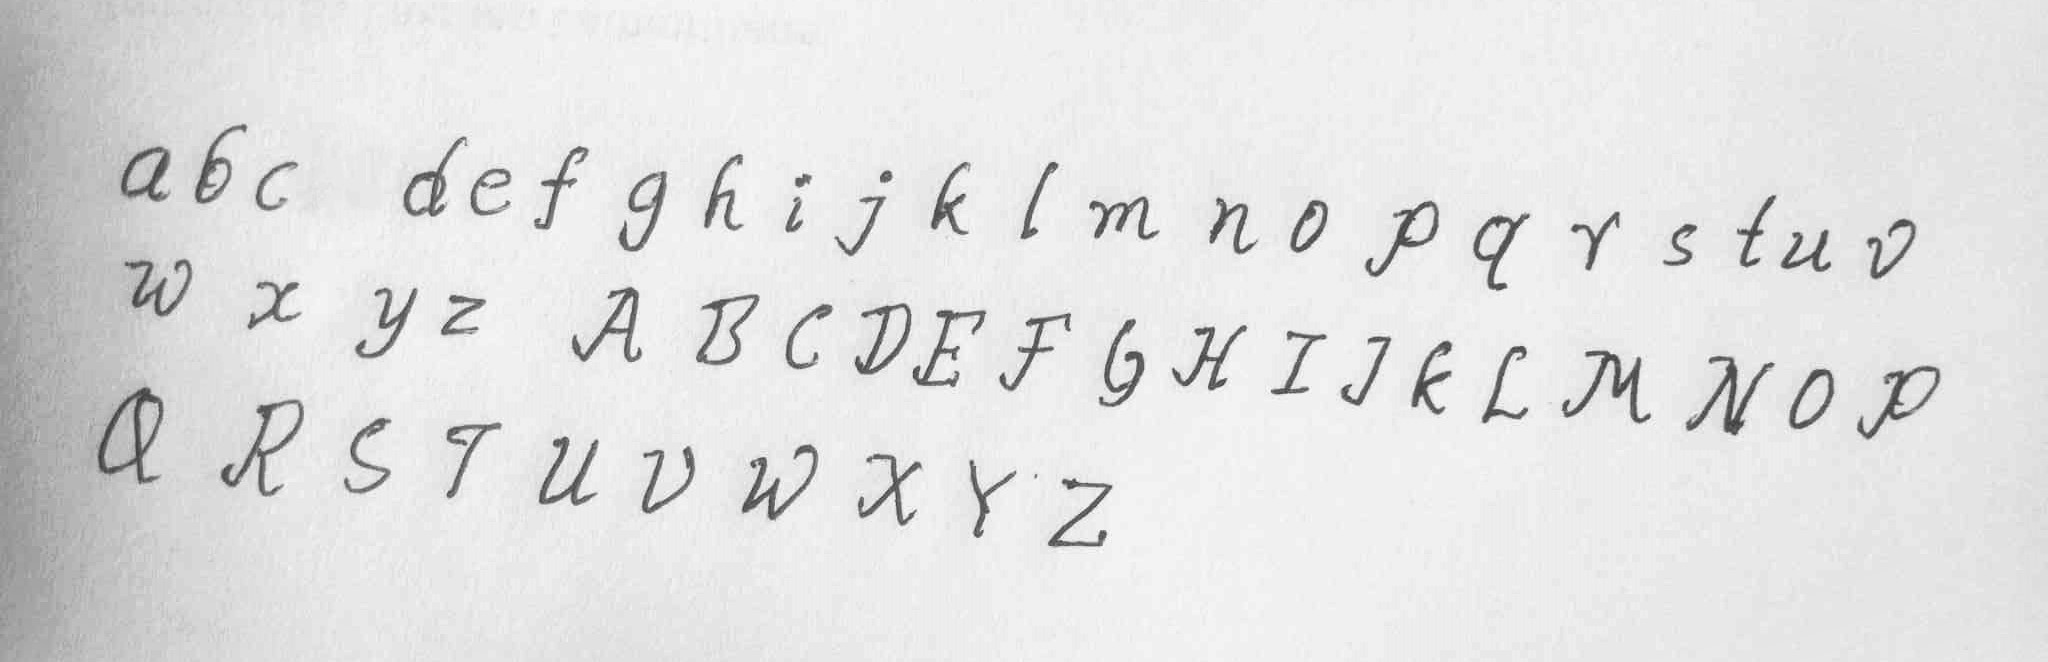 abc def g h i j k l m n o p q r s t u v
w x y z A B C D E F G H I J K L M N O P
Q R S T U V W X Y Z